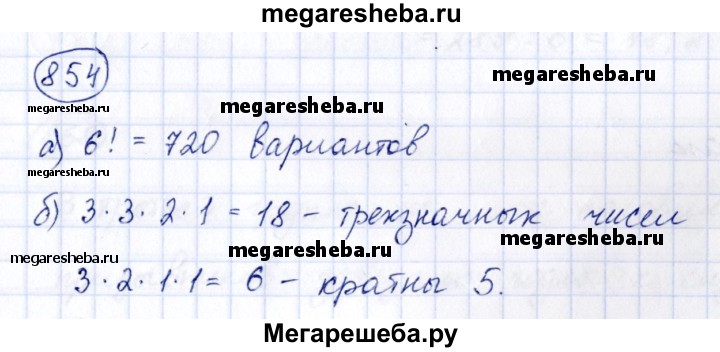 megaresheba.ru
854
megaresheba.ru
megaresheba.ru
megaresheba.ru
а) 6! = 720 вариантов
б) 3·3·2·1 = 18 - трехзначных чисел
megaresheba.ru
megaresheba.ru
megaresheba.ru
3·2·1·1 = 6 - кратны 5.
Мегарешеба.ру